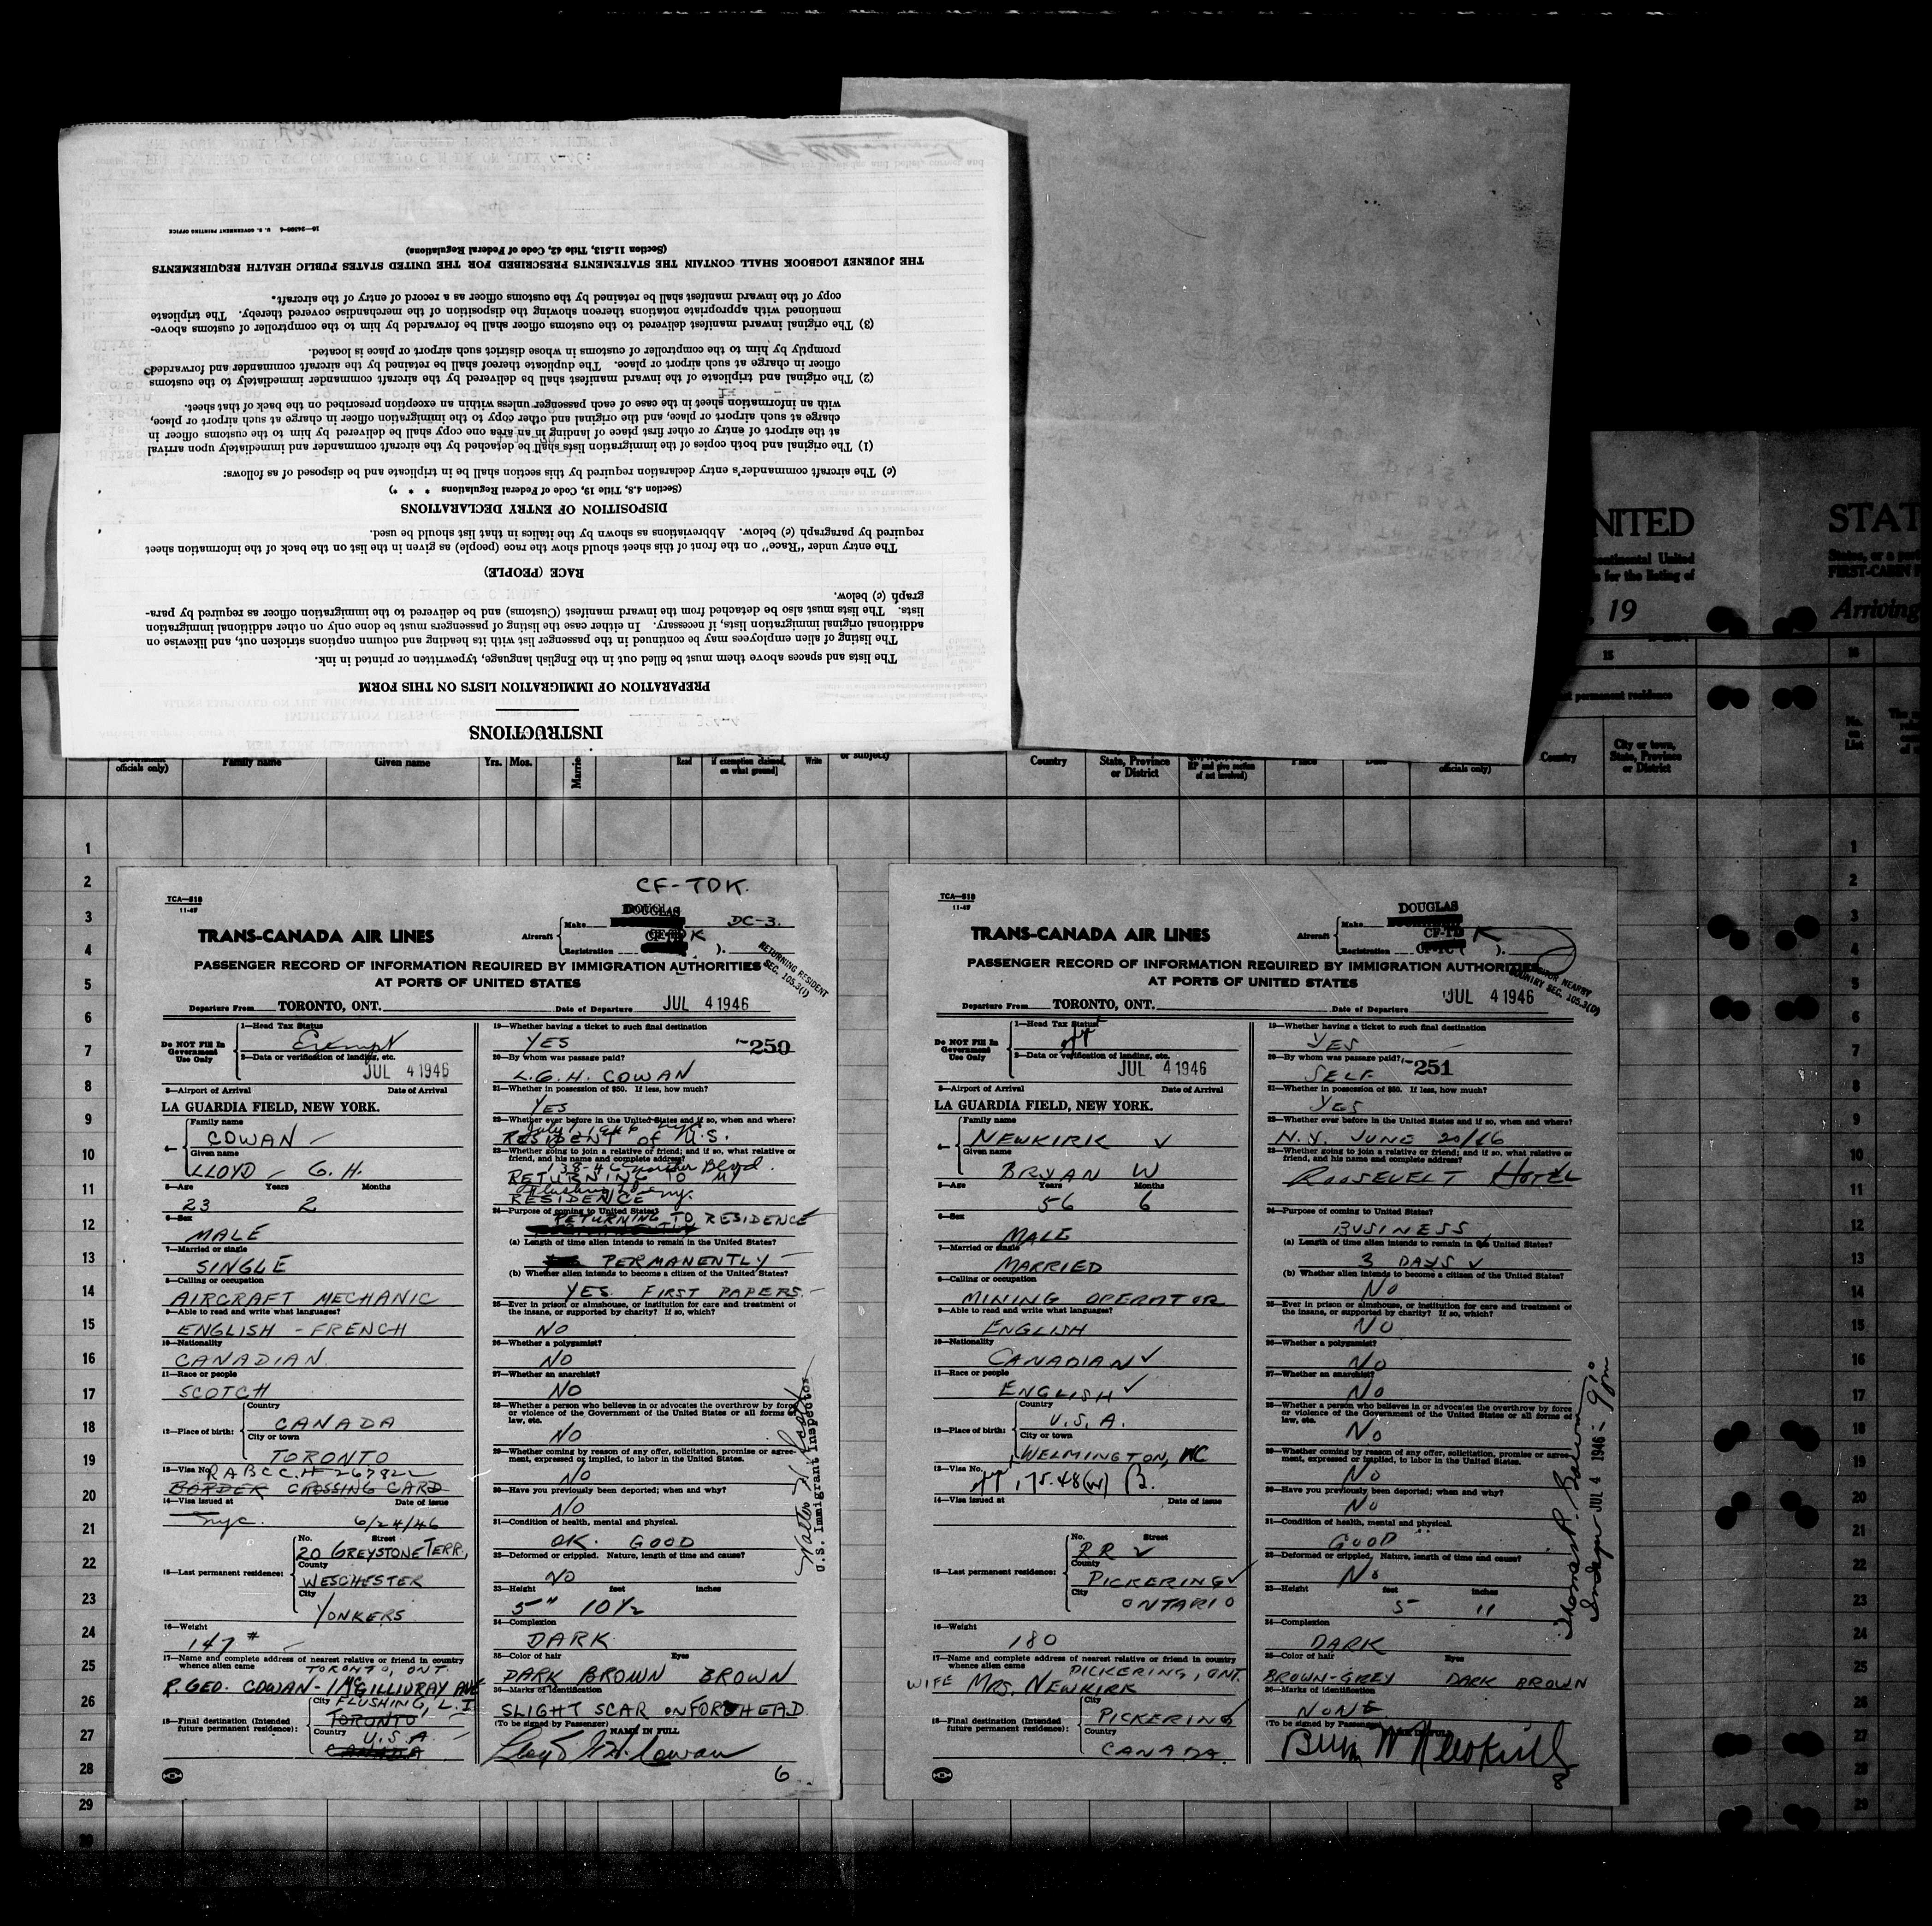 INSTRUCTIONS
PREPARATION OF IMMIGRATION LISTS ON THIS FORM
The lists and spaces above them must be filled out in the English language, typewritten or printed in ink.
The listing of alien employees may be continued in the passenger list with its heading and column captions stricken out, and likewise on
additional original immigration lists, if necessary. In either case the listing of passengers must be done only on other additional immigration
lists. The lists must also be detached from the inward manifest (Customs) and be delivered to the immigration officer as required by para-
graph (c) below.
RACE (PEOPLE)
The entry under "Race" on the front of this sheet should show the race (people) as given in the list on the back of the information sheet
required by paragraph (c) below. Abbreviations as shown by the italics in that list should be used.
DISPOSITION OF ENTRY DECLARATIONS
(Section 4.8, Title 19, Code of Federal Regulations * * *)
(c) The aircraft commander's entry declaration required by this section shall be in triplicate and be disposed of as follows:
(1) The original and both copies of the immigration lists shall be detached by the aircraft commander and immediately upon arrival
at the airport of entry or other first place of landing in an area one copy shall be delivered by him to the customs officer in
charge at such airport or place, and the original and other copy to the immigration officer in charge at such airport or place,
with an information sheet in the case of each passenger unless within an exception prescribed on the back of that sheet.
(2) The original and triplicate of the inward manifest shall be delivered by the aircraft commander immediately to the customs
officer in charge at such airport or place. The duplicate thereof shall be retained by the aircraft commander and forwarded
promptly by him to the comptroller of customs in whose district such airport or place is located.
(3) The original inward manifest delivered to the customs officer shall be forwarded by him to the comptroller of customs above-
mentioned with appropriate notations thereon showing the disposition of the merchandise covered thereby. The triplicate
copy of the inward manifest shall be retained by the customs officer as a record of entry of the aircraft.
THE JOURNEY LOGBOOK SHALL CONTAIN THE STATEMENTS PRESCRIBED FOR THE UNITED STATES PUBLIC HEALTH REQUIREMENTS
(Section 11.513, Title 42, Code of Federal Regulations)
U. S. GOVERNMENT PRINTING OFFICE
NITED STAT
continental United
for the listing of
FIRST-CABIN
, 19 Arriving
15
permanent residence
Country
City or town, State, Province or District
No. on List
officials only) Family name Given name Yrs. Mos. Read if exemption claimed, on what ground] Write or subject)
Country State, Province or District Place Date officials only)
1
2
3
4
5
6
7
8
9
10
11
12
13
14
15
16
17
18
19
20
21
22
23
24
25
26
27
28
29
30
CF-TDK.
TCA—518
11-45
TRANS-CANADA AIR LINES
Aircraft Make DOUGLAS DC-3.
Registration CF-TD K
PASSENGER RECORD OF INFORMATION REQUIRED BY IMMIGRATION AUTHORITIES
AT PORTS OF UNITED STATES
RETURNING RESIDENT
SEC. 105.3(1)
Departure From TORONTO, ONT. Date of Departure JUL 4 1946
Do NOT Fill in Government Use Only
1—Head Tax Status
Exempt
2—Data or verification of landing, etc.
JUL 4 1946
3—Airport of Arrival Date of Arrival
LA GUARDIA FIELD, NEW YORK.
4— Family name
COWAN
Given name
LLOYD G. H.
5—Age Years Months
23 2
6—Sex
MALE
7—Married or single
SINGLE
8—Calling or occupation
AIRCRAFT MECHANIC
9—Able to read and write what languages?
ENGLISH - FRENCH
10—Nationality
CANADIAN
11—Race or people
SCOTCH
12—Place of birth: Country
CANADA
City or town
TORONTO
13—Visa No. RABCC.# 267822
BORDER CROSSING CARD
14—Visa issued at Date of issue
nyc. 6/24/46
15—Last permanent residence: No. Street
20 GREYSTONE TERR,
County
WESCHESTER
City
YONKERS
16—Weight
147 #
17—Name and complete address of nearest relative or friend in country
whence alien came TORONTO, ONT.
P. GEO. COWAN - 1 McGILLIVRAY AVE
18—Final destination (Intended future permanent residence): City FLUSHING, L.I
TORONTO
Country U.S.A.
CANADA
19—Whether having a ticket to such final destination
YES 250
20—By whom was passage paid?
L.G.H. COWAN
21—Whether in possession of $50. If less, how much?
YES
22—Whether ever before in the United States and if so, when and where?
July 1, 1946 nyc
RESIDENT of U.S.
23—Whether going to join a relative or friend; and if so, what relative or
friend, and his name and complete address?
138-46 Blvd.
RETURNING TO MY
Flushing ny.
RESIDENCE
24—Purpose of coming to United States?
RETURNING TO RESIDENCE
(a) Length of time alien intends to remain in the United States?
PERMANENTLY
(b) Whether alien intends to become a citizen of the United States?
YES. FIRST PAPERS.
25—Ever in prison or almshouse, or institution for care and treatment of
the insane, or supported by charity? If so, which?
NO
26—Whether a polygamist?
NO
27—Whether an anarchist?
NO
28—Whether a person who believes in or advocates the overthrow by force
or violence of the Government of the United States or all forms of
law, etc.
NO
29—Whether coming by reason of any offer, solicitation, promise or agree-
ment, expressed or implied, to labor in the United States.
NO
30—Have you previously been deported; when and why?
NO
31—Condition of health, mental and physical.
OK. GOOD
32—Deformed or crippled. Nature, length of time and cause?
NO
33—Height feet inches
5" 10½
34—Complexion
DARK
35—Color of hair Eyes
DARK BROWN BROWN
36—Marks of identification
SLIGHT SCAR ON FOREHEAD.
(To be signed by Passenger) NAME IN FULL
Lloyd G.H. Cowan
6
U.S. Immigrant Inspector
TCA—518
11-45
TRANS-CANADA AIR LINES
Aircraft Make DOUGLAS
Registration CF-TD K
PASSENGER RECORD OF INFORMATION REQUIRED BY IMMIGRATION AUTHORITIES
AT PORTS OF UNITED STATES
VISITOR NEARBY
COUNTRY SEC. 105.3(D)
Departure From TORONTO, ONT. Date of Departure JUL 4 1946
Do NOT Fill in Government Use Only
1—Head Tax Status
2—Data or verification of landing, etc.
JUL 4 1946
3—Airport of Arrival Date of Arrival
LA GUARDIA FIELD, NEW YORK.
4— Family name
NEWKIRK
Given name
BRYAN W
5—Age Years Months
56 6
6—Sex
MALE
7—Married or single
MARRIED
8—Calling or occupation
MINING OPERATOR
9—Able to read and write what languages?
ENGLISH
10—Nationality
CANADIAN
11—Race or people
ENGLISH
12—Place of birth: Country
U.S.A.
City or town
WELMINGTON, NC
13—Visa No.
175.48(w) B.
14—Visa issued at Date of issue
15—Last permanent residence: No. Street
RR 2
County
PICKERING
City
ONTARIO
16—Weight
180
17—Name and complete address of nearest relative or friend in country
whence alien came PICKERING, ONT.
WIFE MRS. NEWKIRK
18—Final destination (Intended future permanent residence): City
PICKERING
Country
CANADA.
19—Whether having a ticket to such final destination
YES
20—By whom was passage paid? 251
SELF
21—Whether in possession of $50. If less, how much?
YES
22—Whether ever before in the United States and if so, when and where?
N.Y. JUNE 20/46
23—Whether going to join a relative or friend; and if so, what relative or
friend, and his name and complete address?
ROOSEVELT HOTEL
24—Purpose of coming to United States?
BUSINESS
(a) Length of time alien intends to remain in the United States?
3 DAYS
(b) Whether alien intends to become a citizen of the United States?
NO
25—Ever in prison or almshouse, or institution for care and treatment of
the insane, or supported by charity? If so, which?
NO
26—Whether a polygamist?
NO
27—Whether an anarchist?
NO
28—Whether a person who believes in or advocates the overthrow by force
or violence of the Government of the United States or all forms of
law, etc.
NO
29—Whether coming by reason of any offer, solicitation, promise or agree-
ment, expressed or implied, to labor in the United States.
NO
30—Have you previously been deported; when and why?
NO
31—Condition of health, mental and physical.
GOOD
32—Deformed or crippled. Nature, length of time and cause?
NO
33—Height feet inches
5 11
34—Complexion
DARK
35—Color of hair Eyes
BROWN-GREY DARK BROWN
36—Marks of identification
NONE
(To be signed by Passenger)
Bryan W Newkirk
8
JUL 4 1946